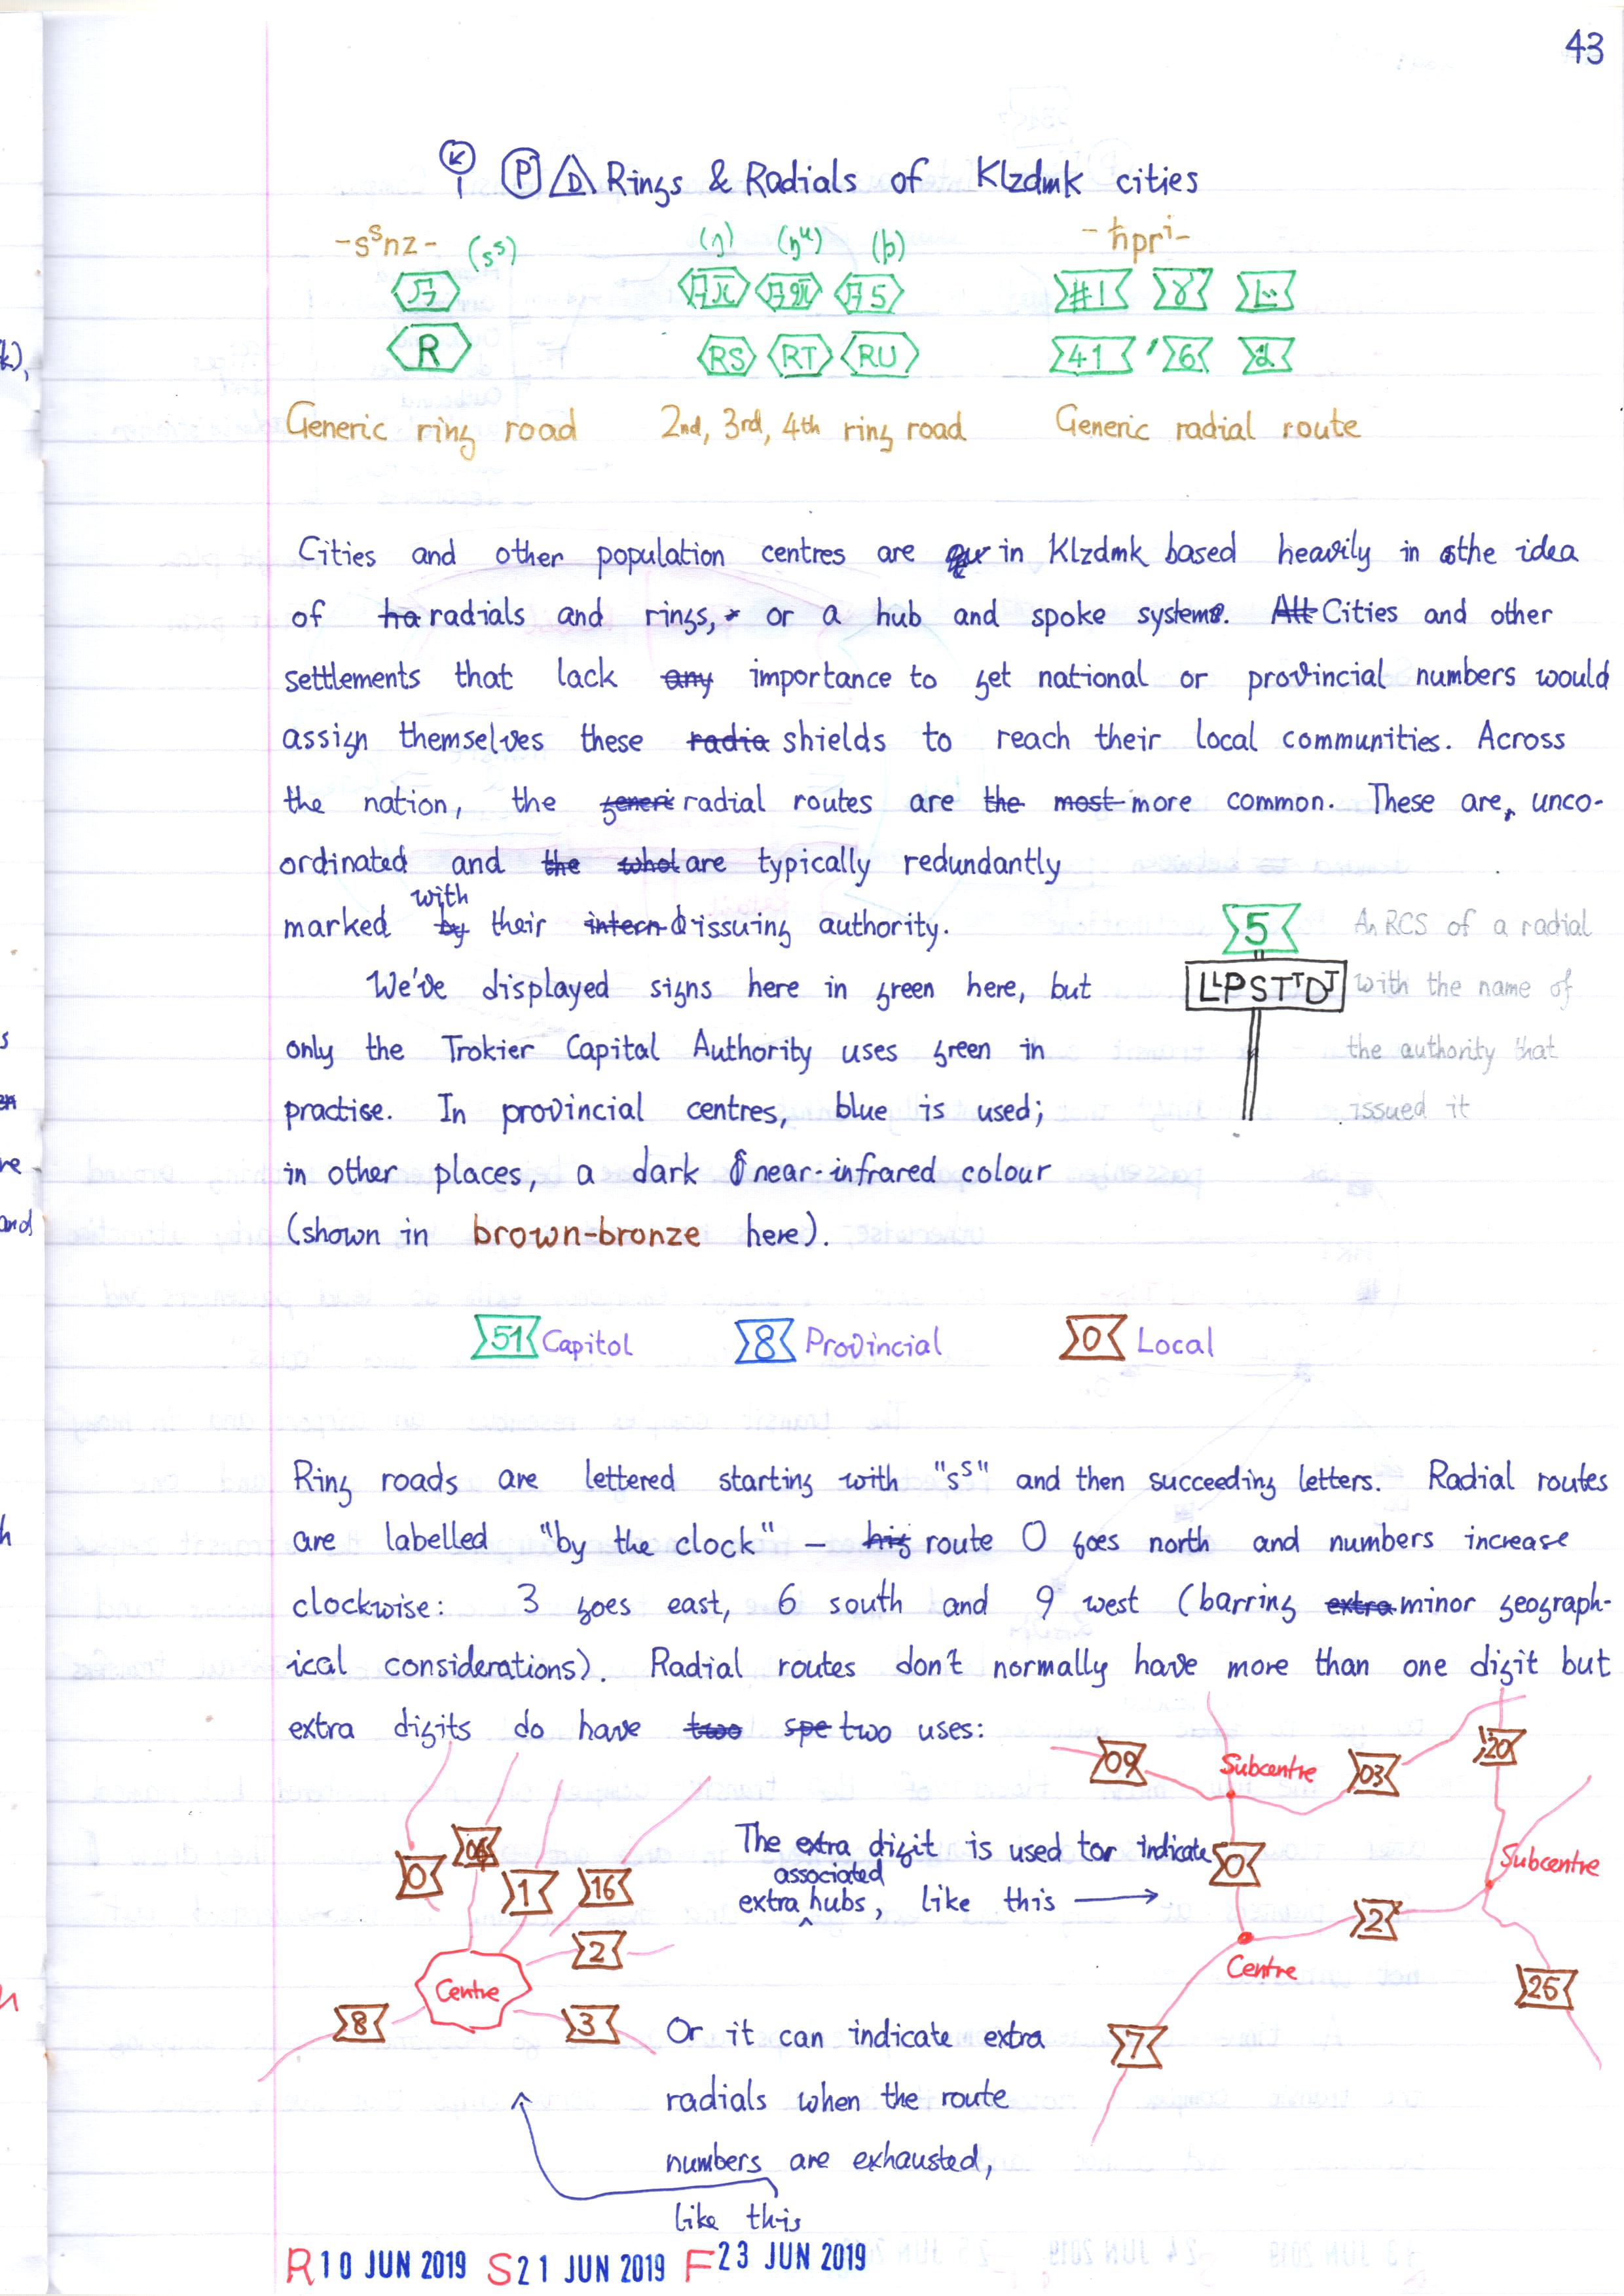 43
K P D Rings & Radials of Klzdmk cities
-sˢnz- (sˢ) (ŋ) (ŋᵘ) (þ) -ħprⁱ-
#1 8
R RS RT RU 41 '6 2
Generic ring road 2nd, 3rd, 4th ring road Generic radial route
Cities and other population centres are in Klzdmk based heavily in the idea
of ha radials and rings, or a hub and spoke system. All Cities and other
settlements that lack any importance to get national or provincial numbers would
assign themselves these radia shields to reach their local communities. Across
the nation, the generi radial routes are the most more common. These are, unco-
ordinated and the whol are typically redundantly
with
marked by their intern issuing authority.
We've displayed signs here in green here, but
only the Trokier Capital Authority uses green in
practise. In provincial centres, blue is used;
in other places, a dark near-infrared colour
(shown in brown-bronze here).
5
LᴸPSTᵀDᴶ
An RCS of a radial
with the name of
the authority that
issued it
51 Capitol 8 Provincial 0 Local
Ring roads are lettered starting with "sˢ" and then succeeding letters. Radial routes
are labelled "by the clock" – hig route 0 goes north and numbers increase
clockwise: 3 goes east, 6 south and 9 west (barring extra minor geograph-
ical considerations). Radial routes don't normally have more than one digit but
extra digits do have two spe two uses:
0 06 1 16
2
3
8
Centre
The extra digit is used to indicate
associated
extra hubs, like this
09 Subcentre 03 20
0 Subcentre
2
Centre
25
7
Or it can indicate extra
radials when the route
numbers are exhausted,
like this
R 10 JUN 2019 S 21 JUN 2019 F 23 JUN 2019